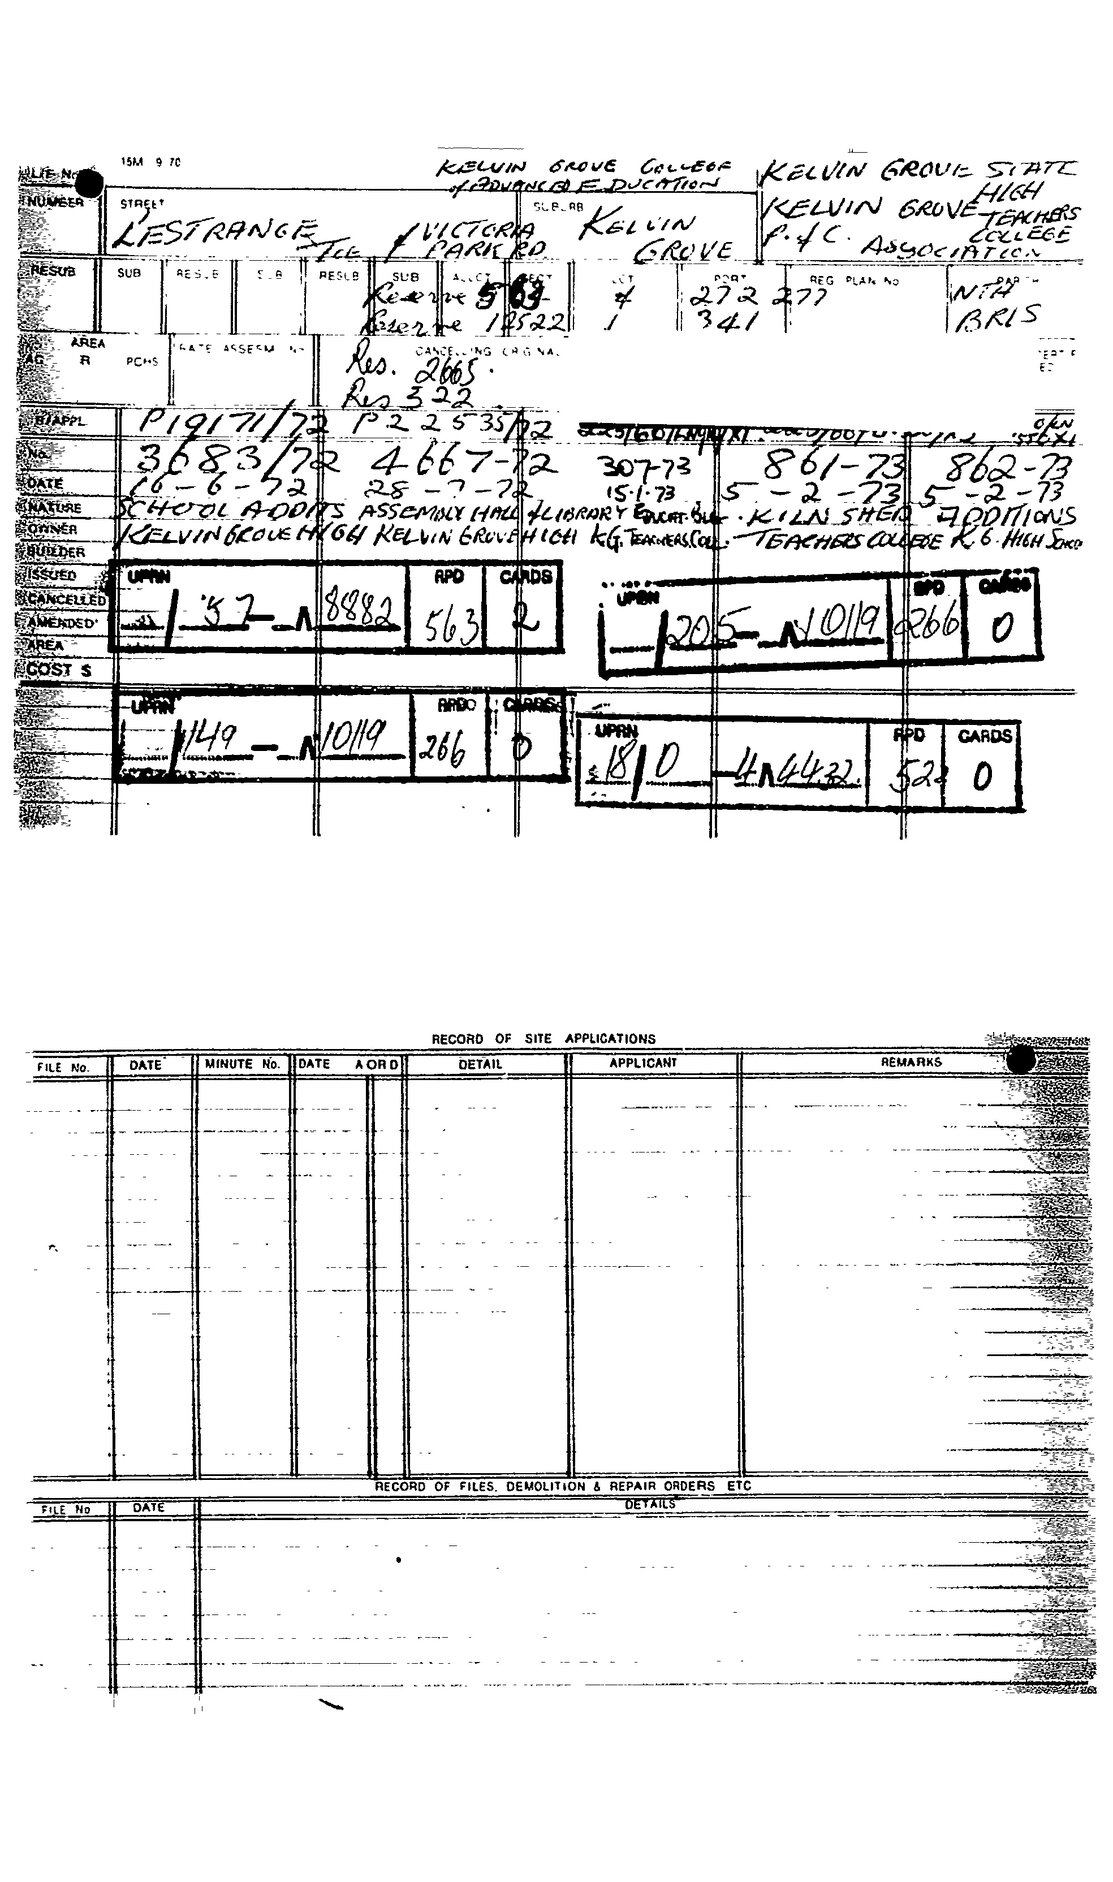 15M 9 70
KELVIN GROVE COLLEGE
of ADVANCED EDUCATION
KELVIN GROVE STATE
HIGH
KELVIN GROVE TEACHERS
COLLEGE
P. & C. ASSOCIATION
NUMBER STREET SUBURB
L'ESTRANGE TCE & VICTORIA
PARK RD.
KELVIN
GROVE
RESUB SUB RESUB SUB RESUB SUB ALLOT SECT PORT REG PLAN NO
Reserve 4 272 277 NTH
Reserve 1 341 BRIS
AREA
R PCHS RATE ASSESM CANCELLING ORIGINAL
Res. 2665.
Res 322
B/APPL P19171/72 P22535/72
No. 3683/72 4667-72 307-73 861-73 862-73
DATE 16-6-72 28-7-72 15.1.73 5-2-73 5-2-73
NATURE SCHOOL ADDITS ASSEMBLY HALL & LIBRARY EDUCAT. BLD. KILN SHED ADDITIONS
OWNER KELVIN GROVE HIGH KELVIN GROVE HIGH K.G. TEACHERS COLL. TEACHERS COLLEGE K.G. HIGH SCHOOL
BUILDER
ISSUED
CANCELLED
AMENDED
AREA
COST $
UPRN RPD CARDS
/ 57 - 8882 563 2
UPRN RPD CARDS
/ 205 - 10119 266 0
UPRN RPD CARDS
/ 149 - 10119 266 0
UPRN RPD CARDS
18/0 - 4432 522 0
RECORD OF SITE APPLICATIONS
FILE No. DATE MINUTE No. DATE A OR D DETAIL APPLICANT REMARKS
RECORD OF FILES, DEMOLITION & REPAIR ORDERS ETC
FILE No DATE DETAILS